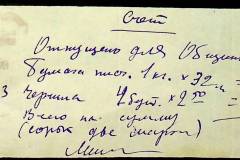 Счет
Отпущено для Общины
Бумага пис. 1 кг. × 32 =
3 Чернила 4 бут. × 2 50 =
Всего на сумму
(сорок две марки)